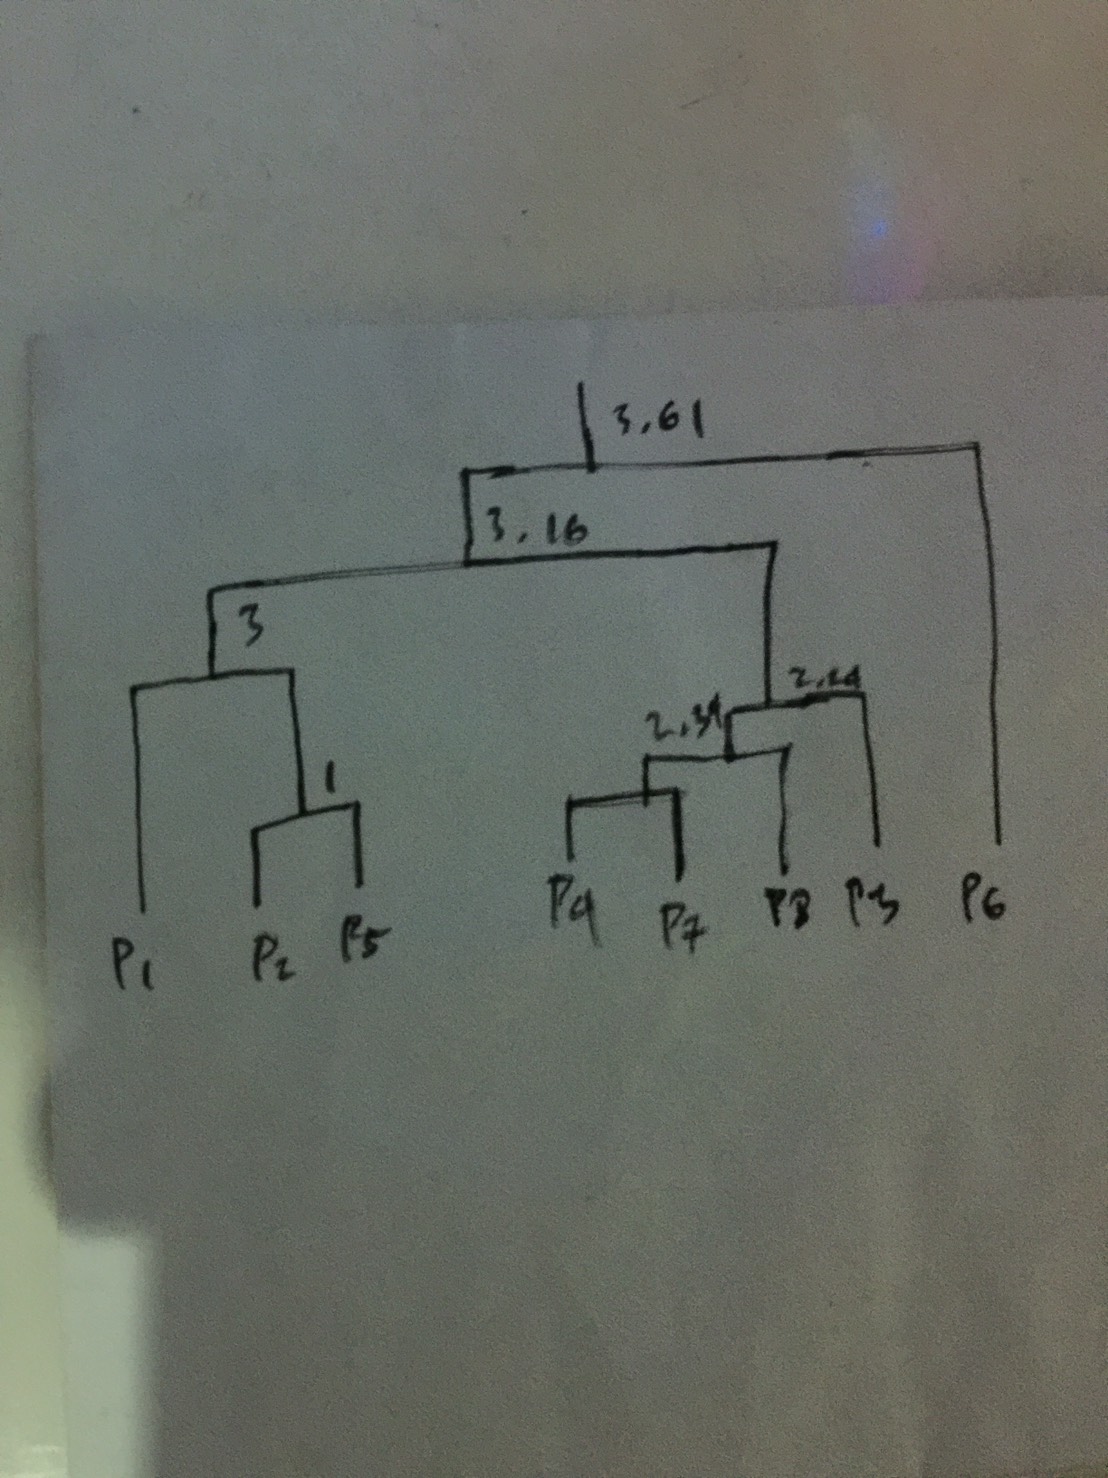 3.61
3.16
3
2.39
1
P1
P2
P5
P4
P7
P8
P3
P6